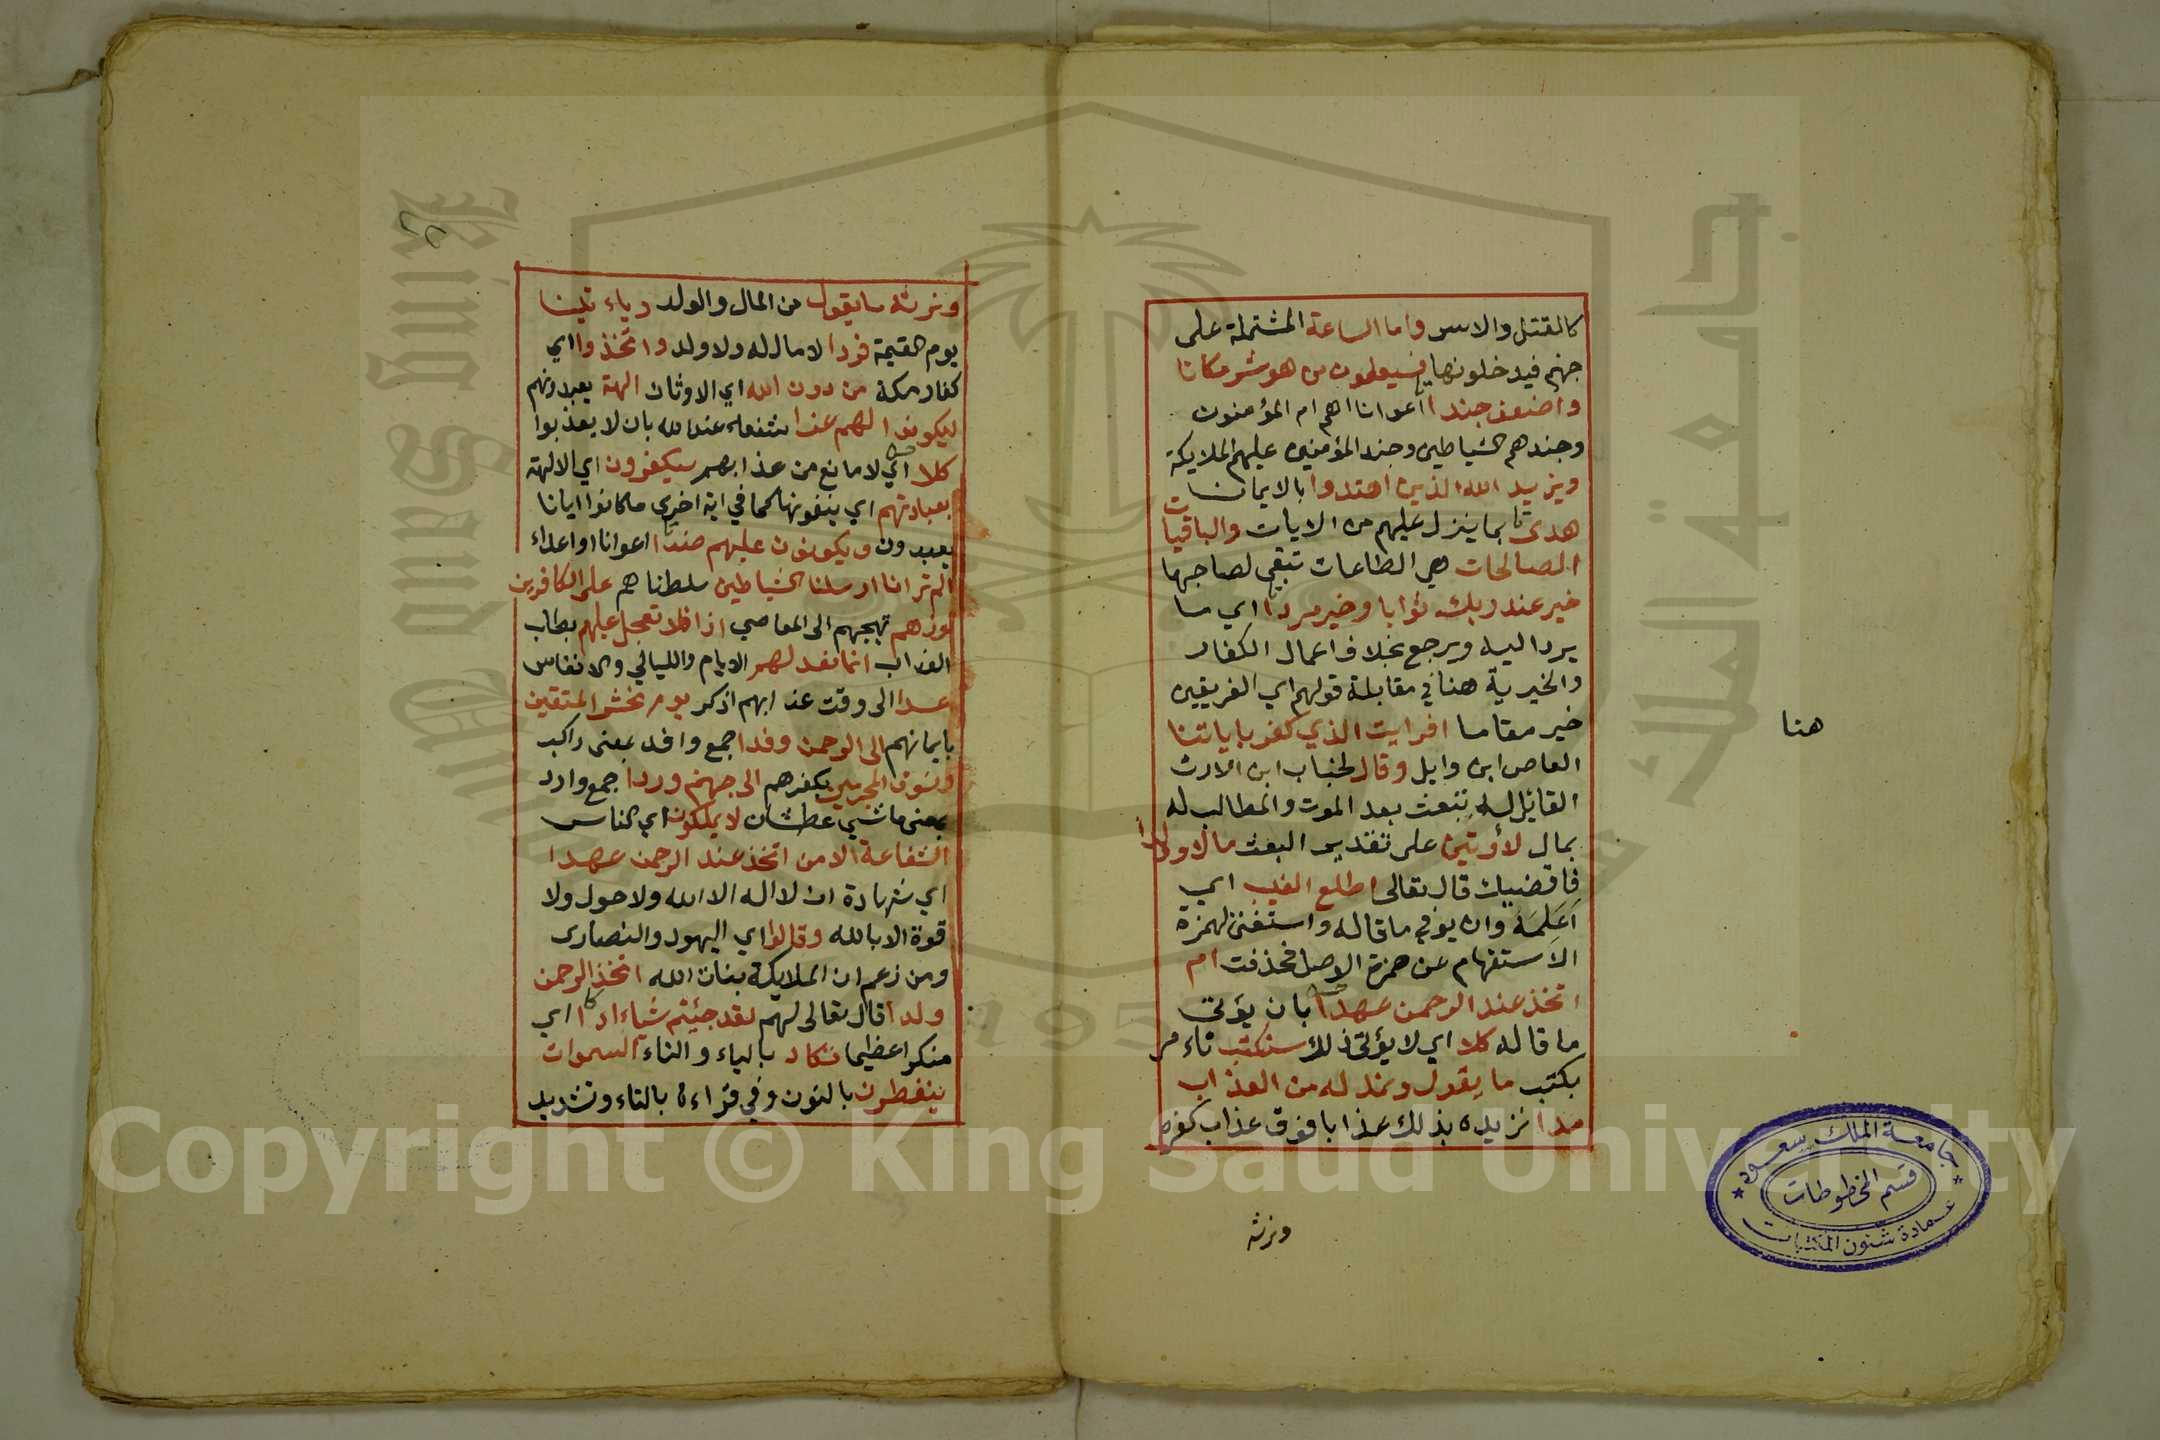 كالقتل والاسر واما الساعة المشتملة على
جهنم فيدخلونها فسيعلمون من هو شر مكانا
واضعف جندا اعوانا اهم ام المؤمنون
وجندهم الشياطين وجند المؤمنين عليهم الملايكة
ويزيد الله الذين اهتدوا بالايمان
هدى بما ينزل عليهم من الايات والباقيات
الصالحات هي الطاعات تبقى لصاحبها
خير عند ربك ثوابا وخير مردا اي ما
يرد اليه ويرجع بخلاف اعمال الكفار
والخيرية هنا في مقابلة قولهم اي الفريقين
خير مقاما افرايت الذي كفر باياتنا
العاص ابن وايل وقال لخباب ابن الارت
القائل له نبعث بعد الموت والمطالب له
بمال لأوتين على تقدير البعث مالا وولدا
فاقضيك قال تعالى اطلع الغيب اي
أعلمه وان يوتى ما قاله واستغنى بهمزة
الاستفهام عن همزة الوصل فحذفت ام
اتخذ عند الرحمن عهدا بان يؤتى
ما قاله كلا اي لا يؤتى ذلك سنكتب نامر
بكتب ما يقول ونمد له من العذاب
مدا نزيده بذلك عذابا فوق عذاب كفره
ونرثه
هنا
ونرثه ما يقول من المال والولد وياءتينا
يوم القيمة فردا لا مال له ولا ولد واتخذوا اي
كفار مكة من دون الله اي الاوثان الهة يعبدونهم
ليكونوا لهم عزا شفعاء عند الله بان لا يعذبوا
كلا اي لا مانع من عذابهم سيكفرون اي الالهة
بعبادتهم اي ينفونها كما في اية اخرى ما كانوا ايانا
يعبدون ويكونون عليهم ضدا اعوانا او اعداء
الم تر انا ارسلنا الشياطين سلطناهم على الكافرين
تؤزهم تهيجهم الى المعاصي ازا فلا تعجل عليهم بطلب
العذاب انما نعد لهم الايام والليالي والانفاس
عدا الى وقت عذابهم اذكر يوم نحشر المتقين
بايمانهم الى الرحمن وفدا جمع وافد بمعنى راكب
ونسوق المجرمين بكفرهم الى جهنم وردا جمع وارد
بمعنى ماشي عطشان لا يملكون اي الناس
الشفاعة الا من اتخذ عند الرحمن عهدا
اي شهادة ان لا اله الا الله ولا حول ولا
قوة الا بالله وقالوا اي اليهود والنصارى
ومن زعم ان الملايكة بنات الله اتخذ الرحمن
ولدا قال تعالى لهم لقد جئتم شياء ادا اي
منكرا عظيما تكاد بالياء والتاء السموات
ينفطرن بالنون وفي قراءة بالتاء وتشديد
جامعة الملك سعود
قسم المخطوطات
عمادة شئون المكتبات
King Saud University
جامعة الملك سعود
1957
Copyright © King Saud University